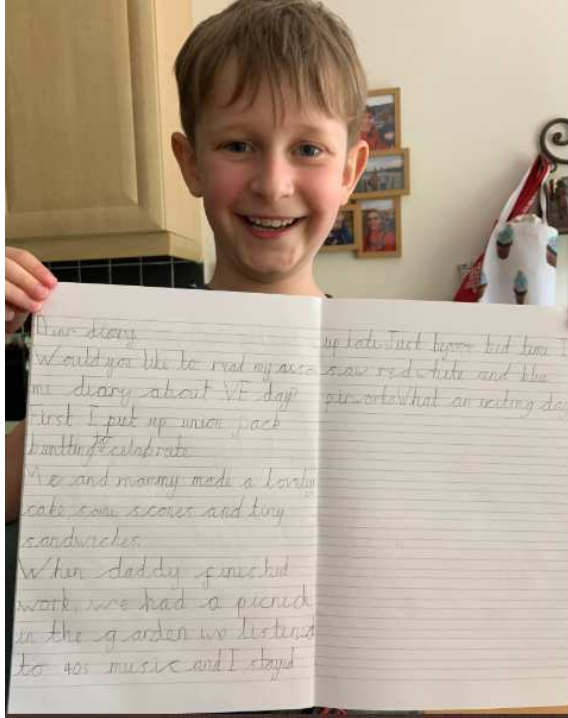 Dear diary
Would you like to read my acso
me diary about VE day?
First I put up union jack
buntting to celabrate
Me and mammy made a lovely
cake, some scones and tiny
sandwiches.
When daddy finished
work, we had a picnick
in the garden we listened
to 40s music and I stayed
up late. Just before bed time I
saw red white and blue
firworks What an exciting day